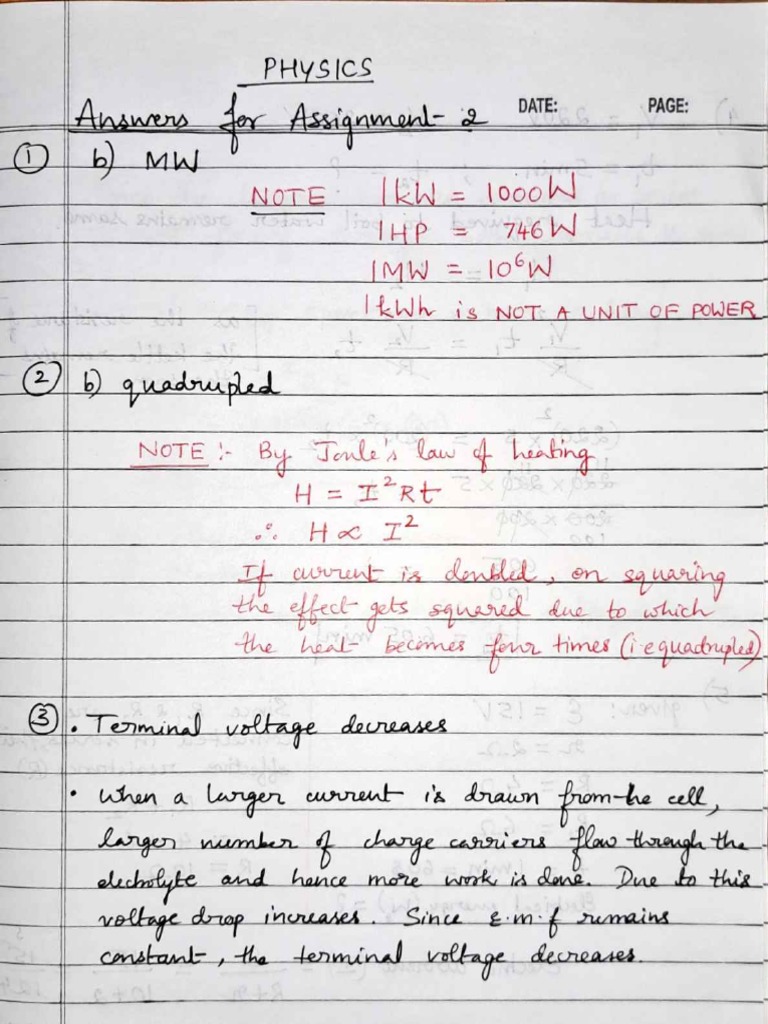 PHYSICS
DATE: PAGE:
Answers for Assignment-2
① b) MW
NOTE 1kW = 1000W
1HP = 746W
1MW = 10⁶W
1kWh is NOT A UNIT OF POWER
② b) quadrupled
NOTE :- By Joule's law of heating
H = I²Rt
∴ H ∝ I²
If current is doubled, on squaring
the effect gets squared due to which
the heat becomes four times (i.e quadrupled)
③ • Terminal voltage decreases
• When a larger current is drawn from the cell,
larger number of charge carriers flow through the
electrolyte and hence more work is done. Due to this
voltage drop increases. Since e.m.f remains
constant, the terminal voltage decreases.